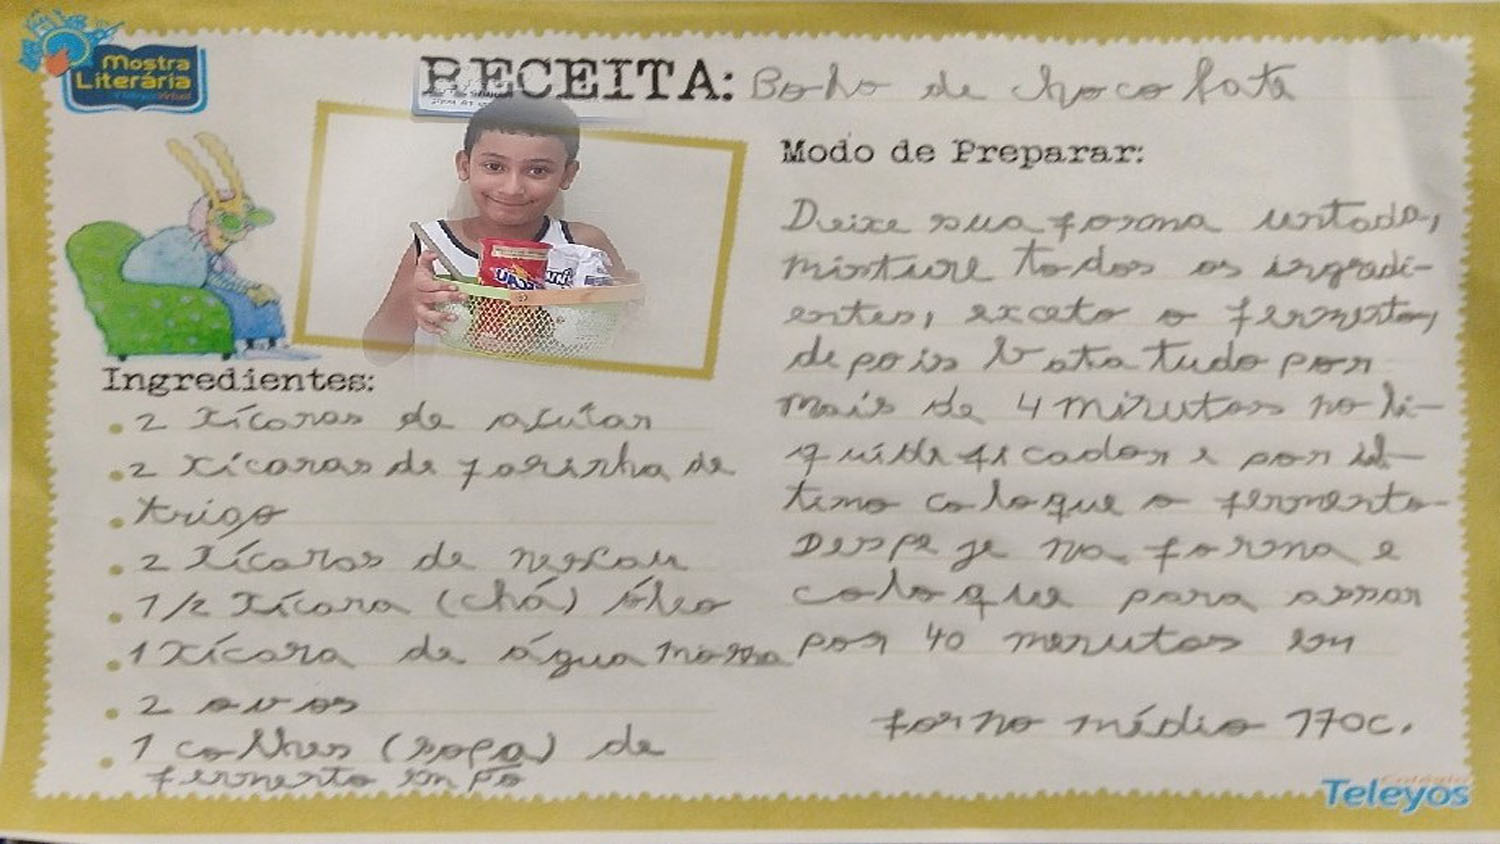 Mostra
Literária
RECEITA: Bolo de chocolate
Ingredientes:
2 xícaras de açúcar
2 xícaras de farinha de
trigo
2 xícaras de nescau
1/2 xícara (chá) óleo
1 xícara de água morna
2 ovos
1 colhres (sopa) de
fermento em pó
Modo de Preparar:
Deixe sua forma untada,
misture todos os ingredi-
entes, exceto o fermento,
depois bata tudo por
mais de 4 minutos no li-
quidificador e por úl-
timo coloque o fermento.
Despeje na forma e
coloque para assar
por 40 menutos em
forno médio 170c.
Colégio
Teleyos